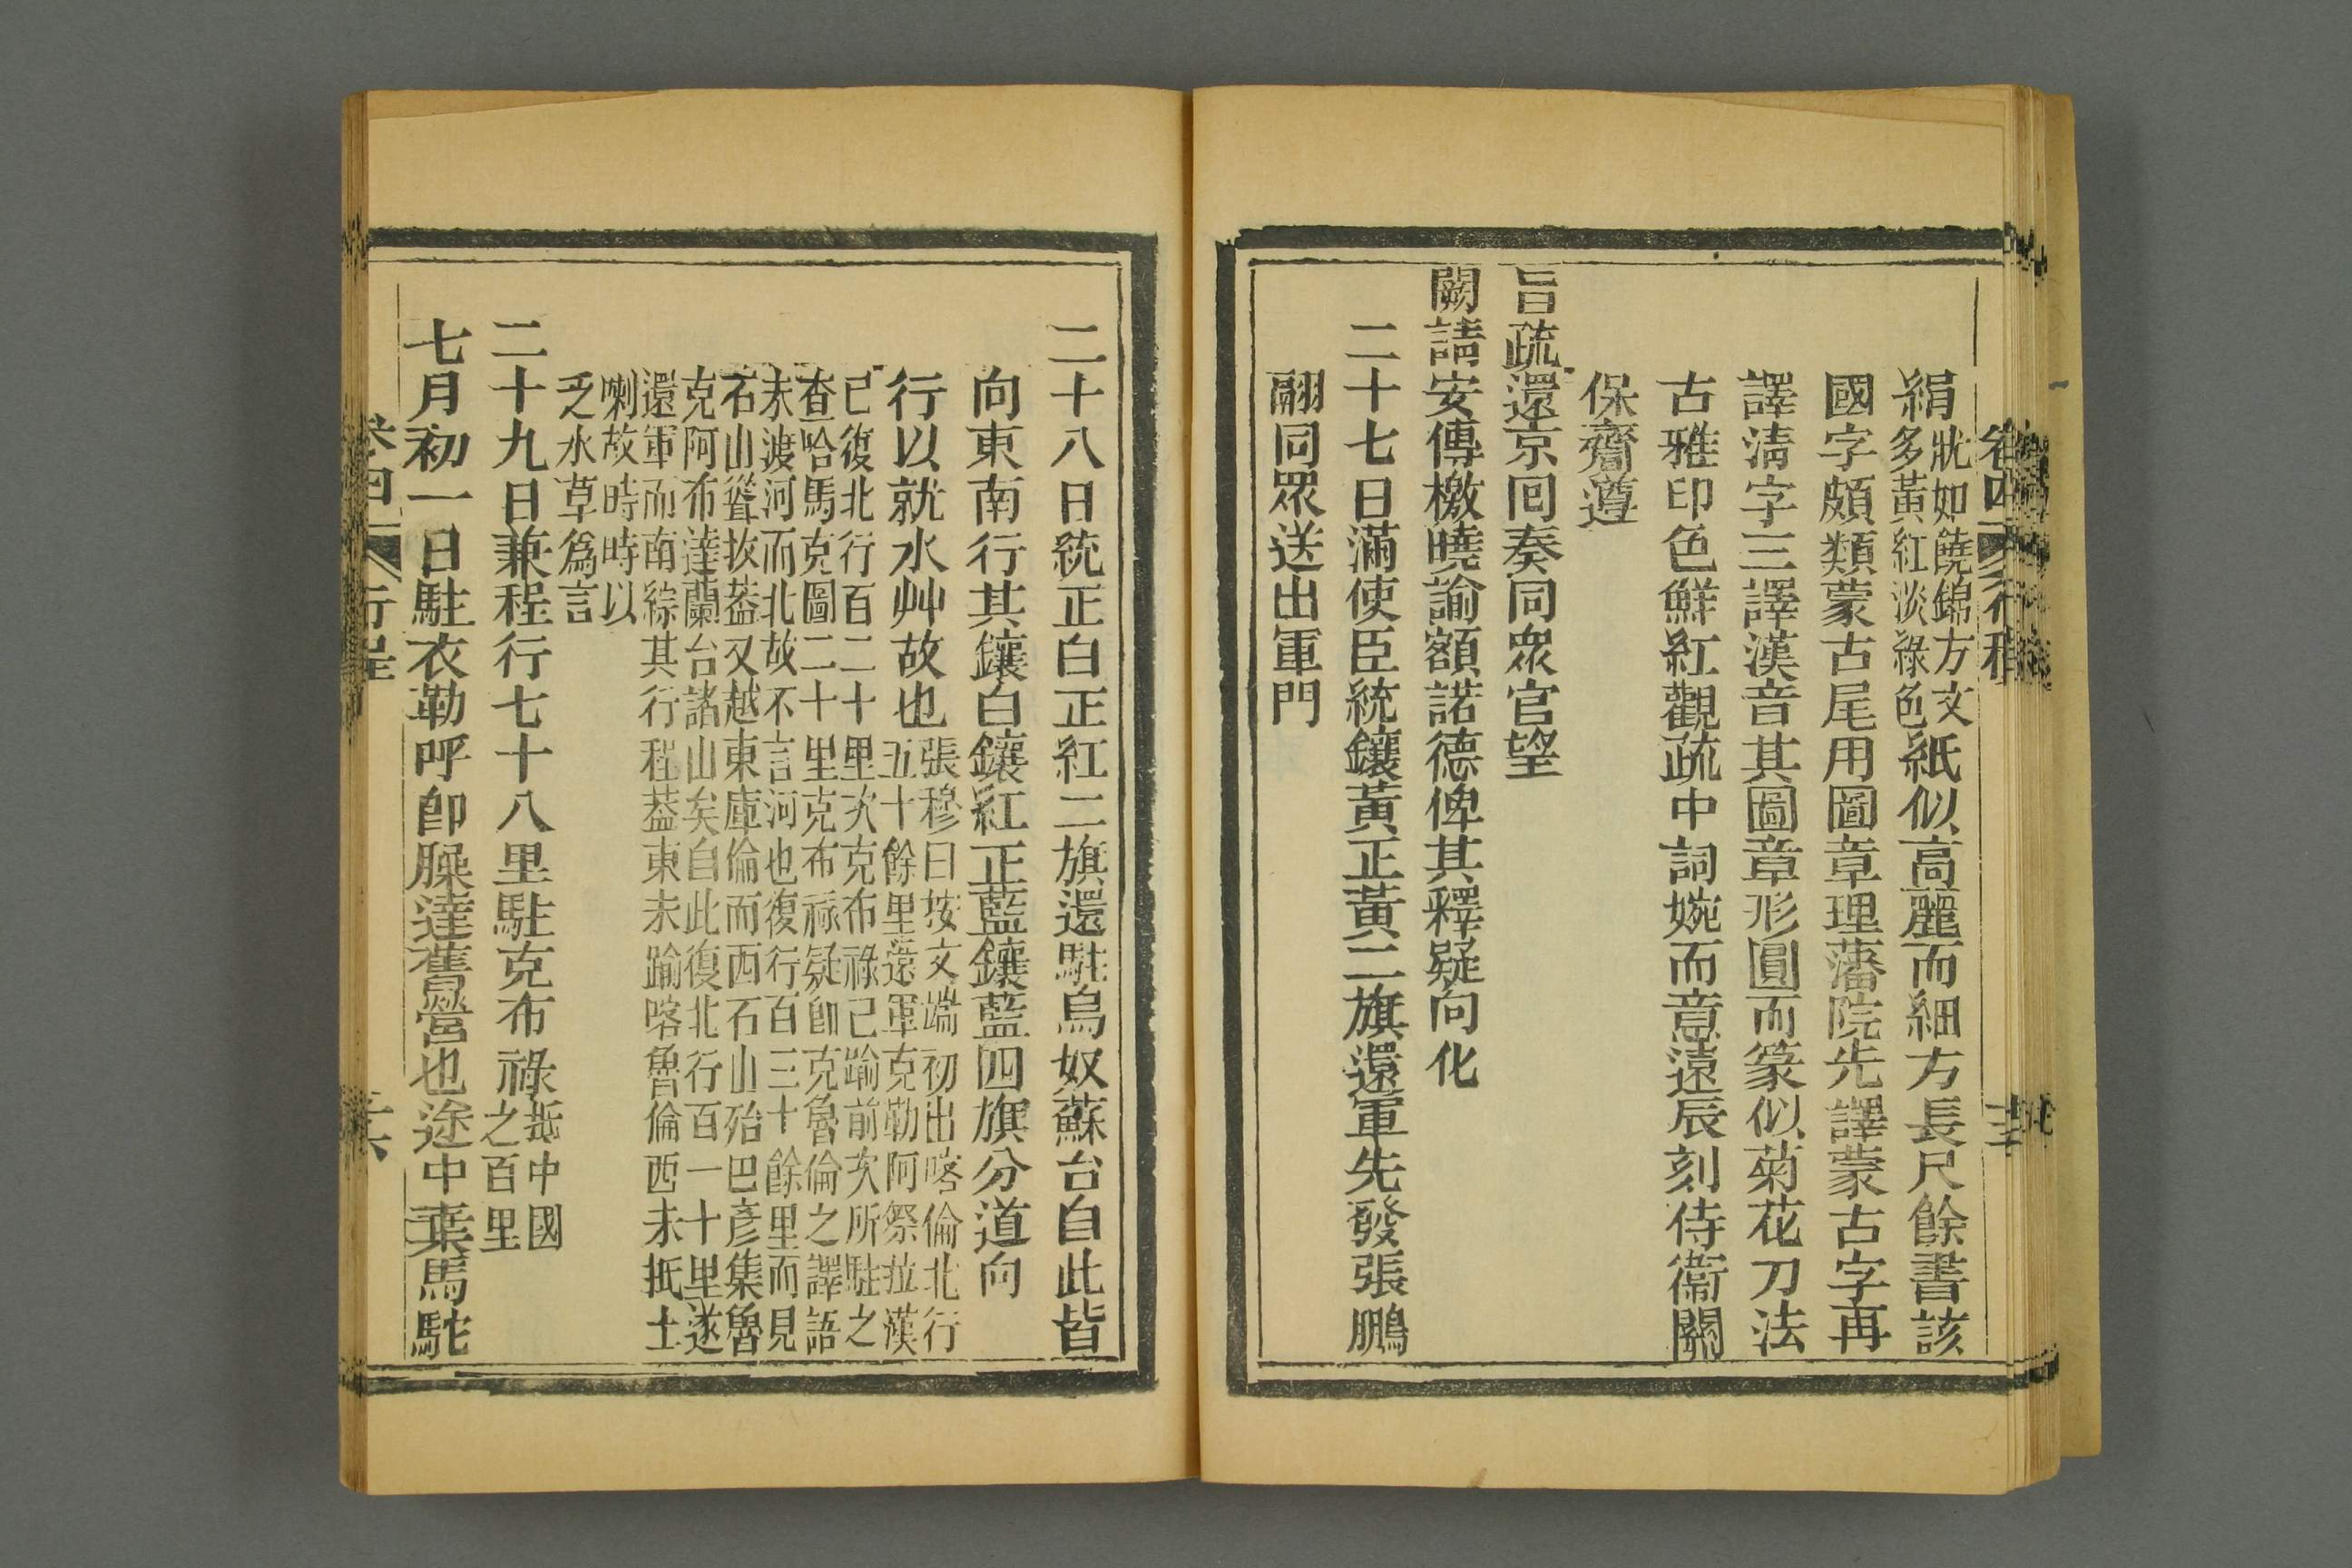 絹狀如饒錦方文多黃紅淡綠色紙似高麗而細方長尺餘書該
國字頗類蒙古尾用圖章理藩院先譯蒙古字再
譯淸字三譯漢音其圖章形圓而篆似菊花刀法
古雅印色鮮紅觀疏中詞婉而意遠辰刻侍衞關
保齎遵
旨疏還京囘奏同衆官望
闕請安傳檄曉諭額諾德俾其釋疑向化
二十七日滿使臣統鑲黃正黃二旗還軍先發張鵬
翮同眾送出軍門
卷四
行程
二十八日統正白正紅二旗還駐烏奴蘇台自此皆
向東南行其鑲白鑲紅正藍鑲藍四旗分道向
行以就水艸故也
張穆曰按文端初出喀倫北行
五十餘里遠軍克勒阿祭拉漢
已復北行百二十里次克布祿已踰前次所駐之
查哈馬克圖二十里克布祿疑卽克魯倫之譯語
未渡河而北故不言河也復行百三十餘里而見
石山聳拔葢又越東庫倫而西石山殆巴彥集魯
克阿布達蘭台諸山矣自此復北行百一十里遂
還軍而南綜其行程葢東未踰喀魯倫西未抵土
喇故時時以
乏水草爲言
二十九日兼程行七十八里駐克布祿
抵中國
之百里
七月初一日駐衣勒呼卽臊達舊營也途中棄馬駝
卷四
行程